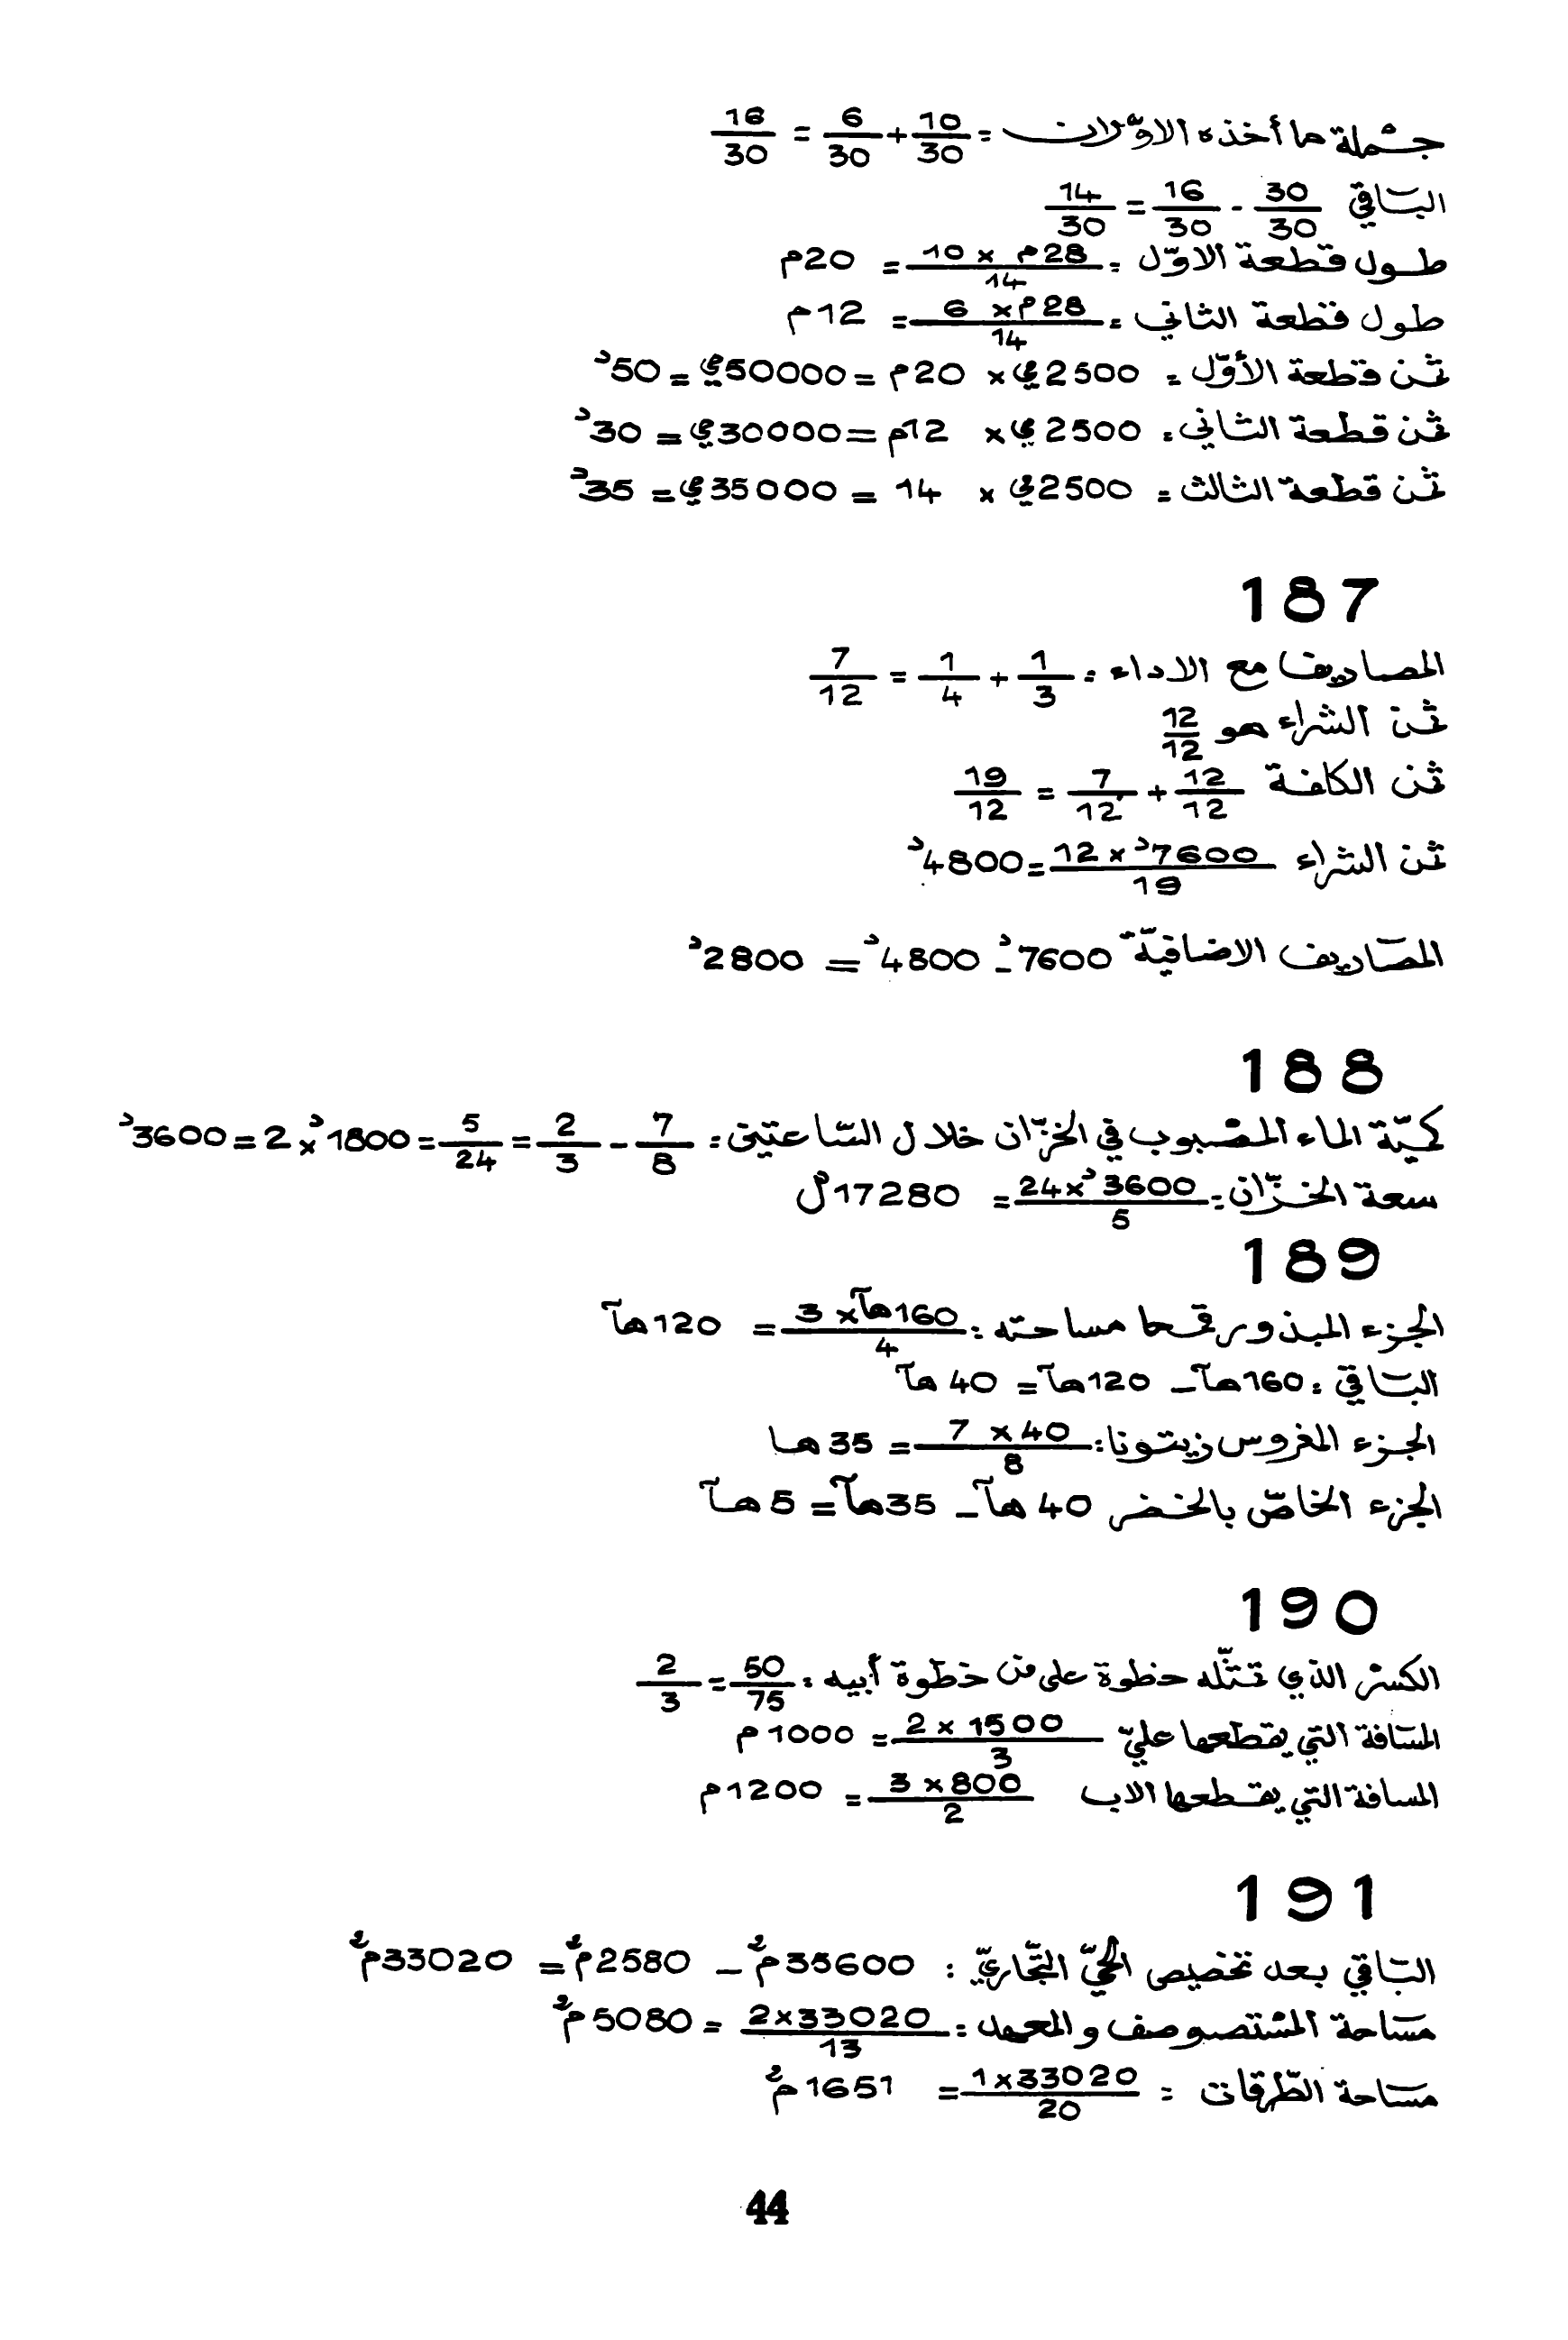 جملة ما أخذه الاوّلان = 10/30 + 6/30 = 16/30
الباقي 30/30 - 16/30 = 14/30
طول قطعة الاوّل = 28م × 10 / 14 = 20م
طول قطعة الثاني = 28م × 6 / 14 = 12م
ثمن قطعة الأوّل = 2500ي × 20م = 50000ي = 50د
ثمن قطعة الثاني = 2500ي × 12م = 30000ي = 30د
ثمن قطعة الثالث = 2500ي × 14 = 35000ي = 35د
187
المصاريف مع الاداء = 1/3 + 1/4 = 7/12
ثمن الشراء هو 12/12
ثمن الكلفة 12/12 + 7/12 = 19/12
ثمن الشراء 7600د × 12 / 19 = 4800د
المصاريف الاضافيّة 7600د - 4800د = 2800د
188
كميّة الماء المصبوب في الخزّان خلال السّاعتين = 7/8 - 2/3 = 5/24 = 1800د × 2 = 3600د
سعة الخزّان = 3600د × 24 / 5 = 17280ل
189
الجزء المبذور قمحا مساحته = 160هآ × 3 / 4 = 120هآ
الباقي = 160هآ - 120هآ = 40 هآ
الجزء المغروس زيتونا = 40 × 7 / 8 = 35 ها
الجزء الخاصّ بالخضر 40 هآ - 35هآ = 5 هآ
190
الكسر الذي تمثّله خطوة علي من خطوة أبيه = 50/75 = 2/3
المسافة التي يقطعها عليّ 1500 × 2 / 3 = 1000 م
المسافة التي يقطعها الاب 800 × 3 / 2 = 1200م
191
الباقي بعد تخصيص الحيّ التّجاريّ : 35600م² - 2580م² = 33020م²
مساحة المستوصف والمعهد = 33020×2 / 13 = 5080م²
مساحة الطّرقات = 33020×1 / 20 = 1651م²
44